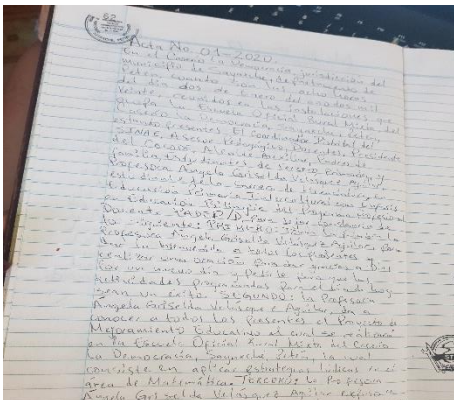 62
Acta No. 01-2020.
En el Caserío La Democracia, jurisdicción del
municipio de Sayaxché, departamento de
Petén, cuando son las ocho horas
del día dos de enero del año dos mil
veinte, reunidos en las instalaciones que
ocupa la Escuela Oficial Rural Mixta del
Caserío La Democracia, Sayaxché, Petén
estando presentes El Coordinador Distrital, del
SINAE, Asesor Pedagógico, Docentes, Presidente
del Cocode, Alcalde Auxiliar, Padres de
familia, Estudiantes de tercero Primaria y
Profesora Angela Griselda Velásquez Aguilar
Educación Primaria Intercultural con Énfasis
en Educación Bilingüe del Programa
Docente PADEP/D. Para dejar constancia de
lo siguiente: PRIMERO: La
Profesora Angela Griselda Velásquez Aguilar, da
la bienvenida a todos los presentes y
realizar una oración gracias a Dios
por un nuevo día y pedirle para que las
actividades programadas para el día de hoy
sean un éxito SEGUNDO: la Profesora
Angela Griselda Velásquez Aguilar da a
conocer a todos los presentes el Proyecto de
Mejoramiento Educativo el cual se
en la Escuela Oficial Rural Mixta del Caserío
La Democracia, Sayaxché, Petén, la cual
consiste en aplicar estrategias lúdicas en el
área de Matemática. TERCERO: la Profesora
Angela Griselda Velásquez Aguilar